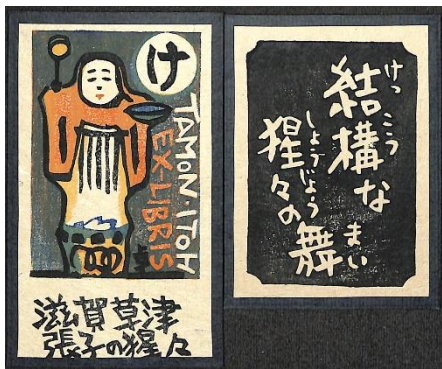 け
TAMON・ITOH
EX-LIBRIS
滋賀草津
張子の猩々
結構な
けっこう
猩々の
しょうじょう
舞
まい